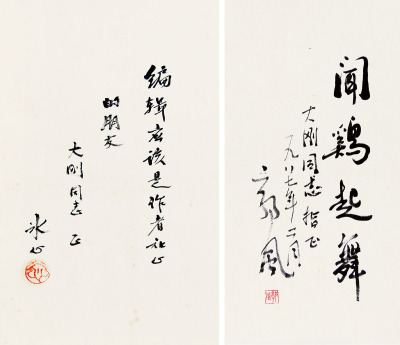 编辑应该是作者知心
的朋友
大刚同志 正
冰心
闻鷄起舞
大刚同志指正
一九八七年二月
郭风